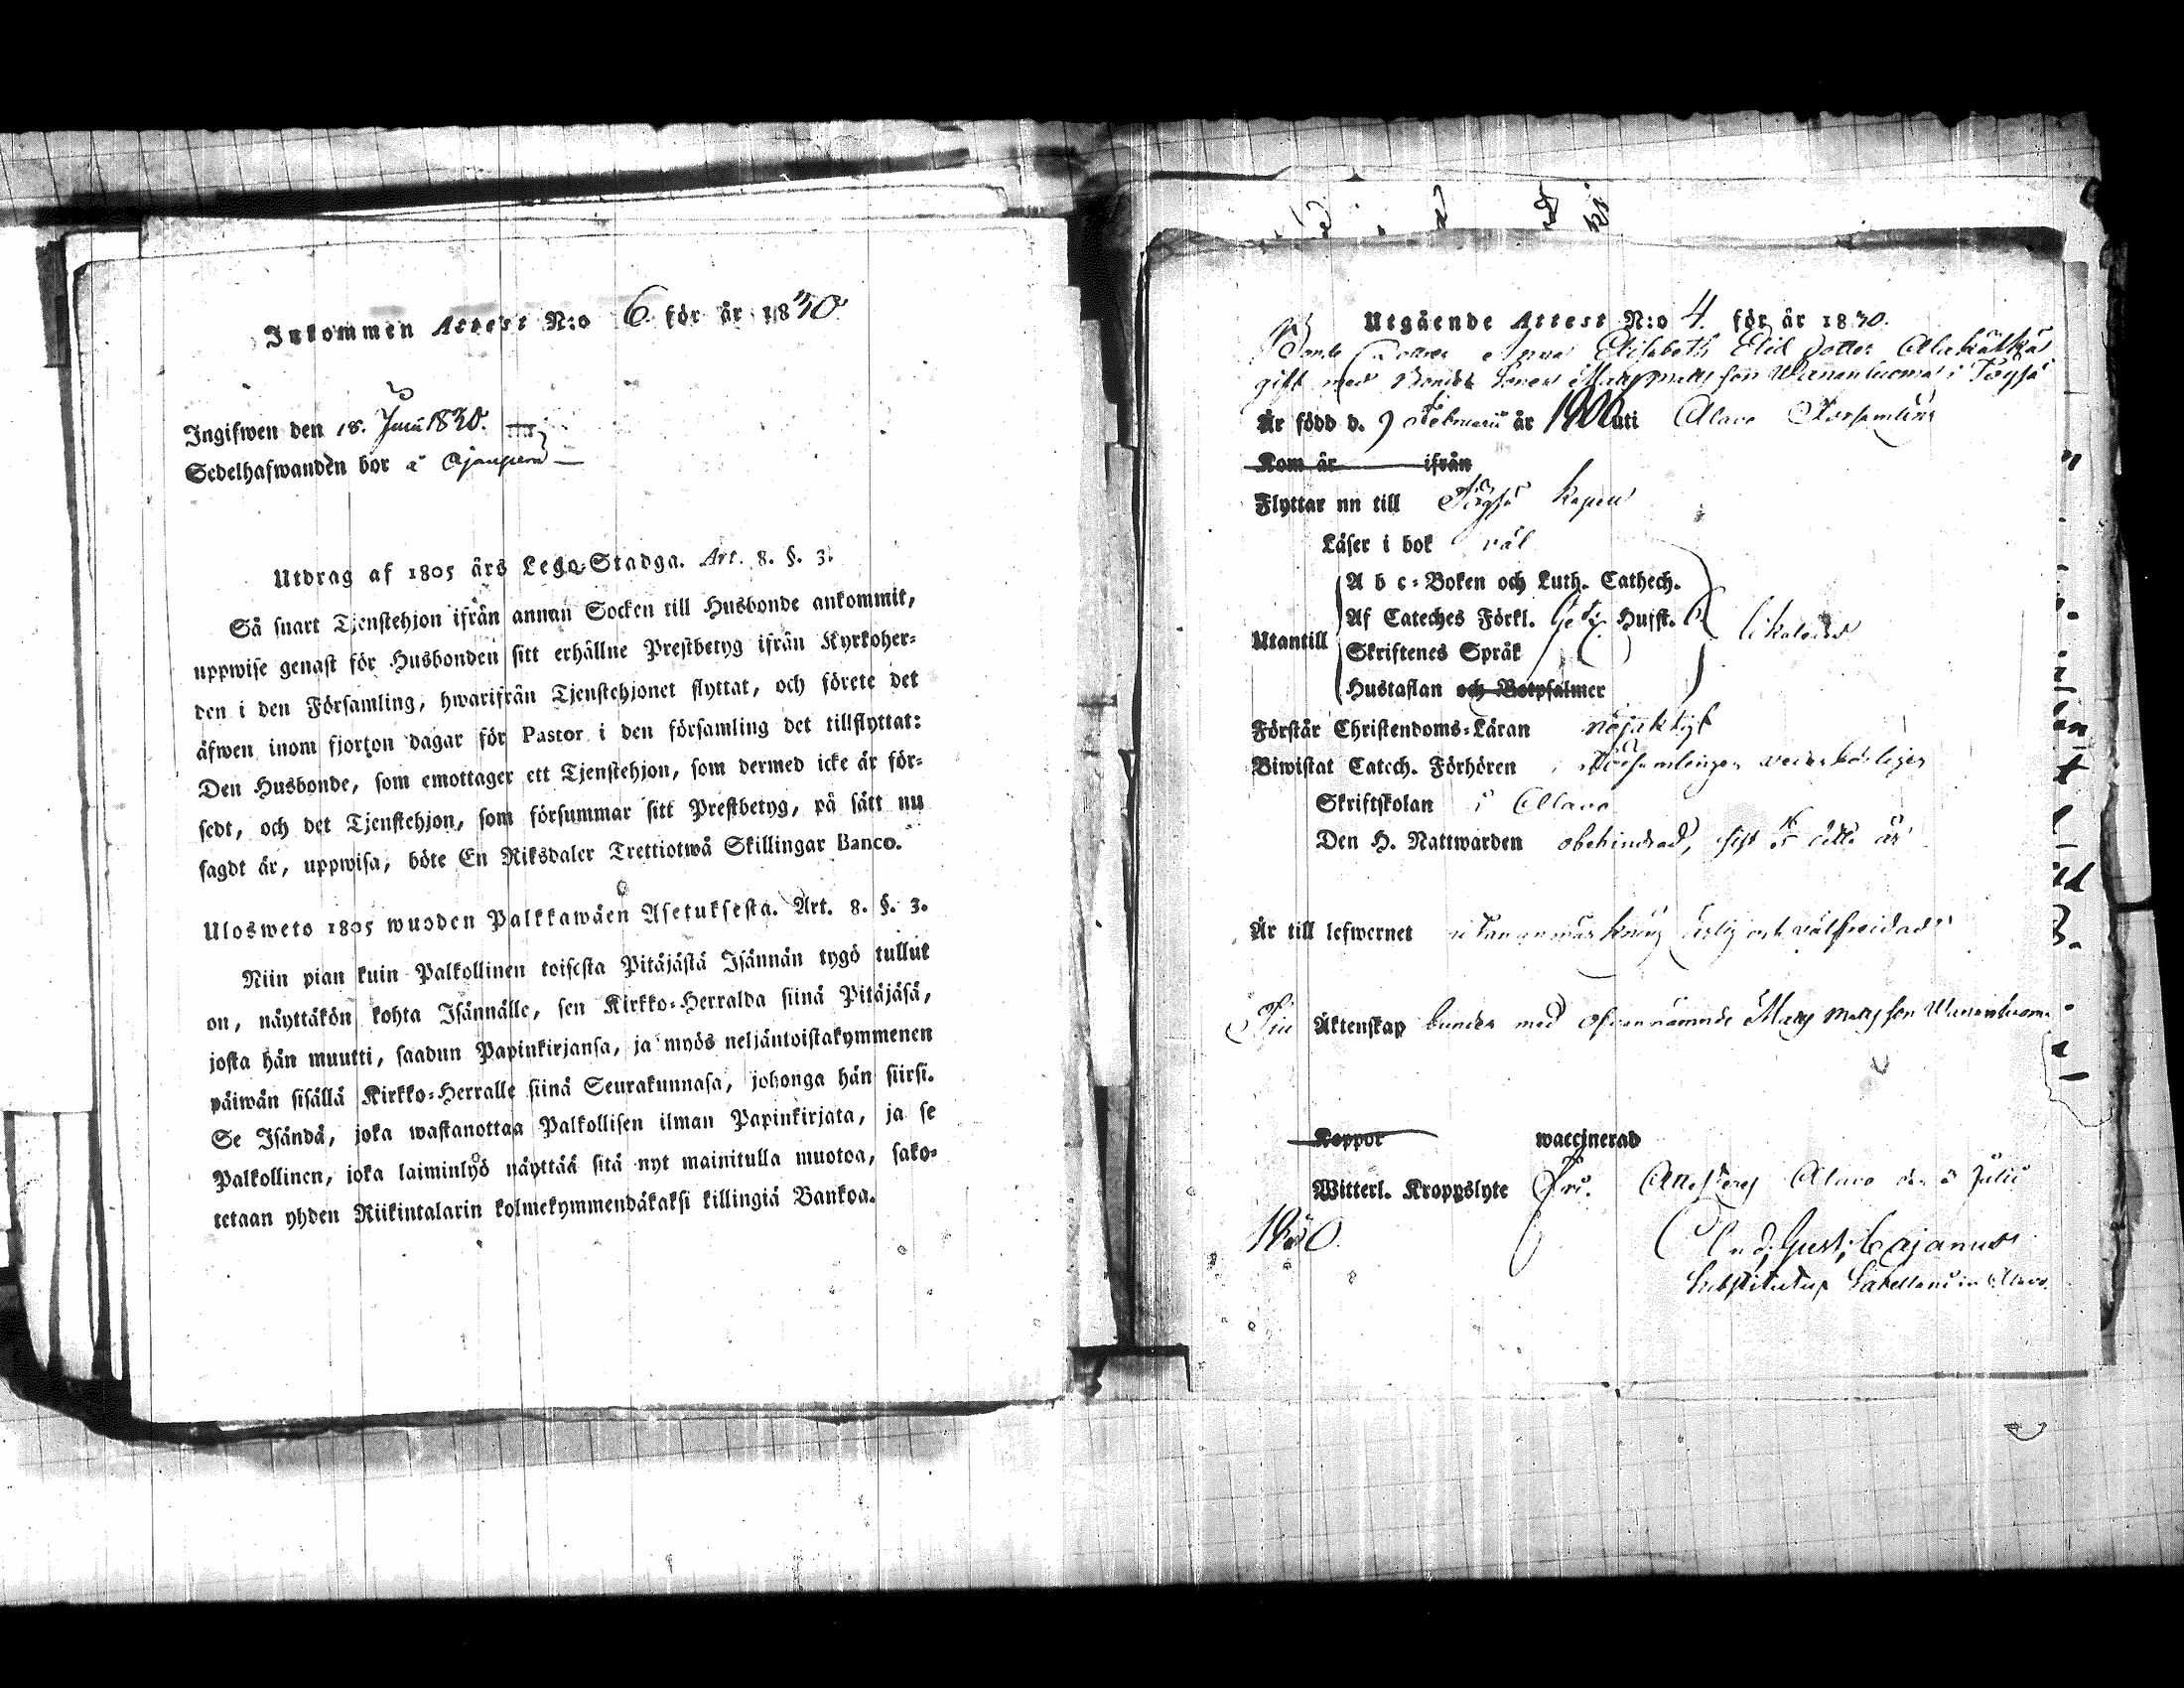 Inkommen Attest N:o 6. för år 1830.
Ingifwen den 18. Juli 1830.
Sedelhafwanden bor å
Utdrag af 1805 års Lego-Stadga. Art. 8. §. 3.
Så snart Tjenstehjon ifrån annan Socken till Husbonde ankommit,
uppwise genast för Husbonden sitt erhållne Prestbetyg ifrån Kyrkoher-
den i den Församling, hwarifrån Tjenstehjonet flyttat, och förete det
äfwen inom fjorton dagar för Pastor i den församling det tillflyttat:
Den Husbonde, som emottager ett Tjenstehjon, som dermed icke är för-
sedt, och det Tjenstehjon, som försummar sitt Prestbetyg, på sätt nu
sagdt är, uppwisa, böte En Riksdaler Trettiotwå Skillingar Banco.
Ulosweto 1805 wuoden Palkkawäen Asetuksesta. Art. 8. §. 3.
Niin pian kuin Palkollinen toisesta Pitäjästä Isännän tygö tullut
on, näyttäkön kohta Isännälle, sen Kirkko-Herralda siinä Pitäjäsä,
josta hän muutti, saadun Papinkirjansa, ja myös neljäntoistakymmenen
päiwän sisällä Kirkko-Herralle siinä Seurakunnasa, johonga hän siirsi.
Se Isändä, joka wastanottaa Palkollisen ilman Papinkirjata, ja se
Palkollinen, joka laiminlyö näyttää sitä nyt mainitulla muotoa, sako-
tetaan yhden Riikintalarin kolmekymmendäkaksi killingiä Bankoa.
Utgående Attest N:o 4. för år 1830.
Bonde Dottren Anna Elisabeth Elid dotter Alakätkä
gift med Bonde Sonen Matts Matts son Wananluoma i Töysä
Är född d. 9 Februarii år 1806 uti Alavo Församling
Kom år ifrån
Flyttar nu till Töysä Kapell
Läser i bok väl
Utantill
A b c-Boken och Luth. Cathech.
Af Cateches Förkl. Hufst.
Skriftenes Språk
Hustaflan och Botpsalmer
likaledes
Förstår Christendoms-Läran nöjaktigt
Biwistat Catech. Förhören i Församlingen
Skriftskolan i Alavo
Den H. Nattwarden obehindrad, sist detta år
Är till lefwernet utan anmärkning ärlig och välfrejdad
Till Äktenskap bunden med ofvannämnde Matts Matts son Wananluoma
Koppor waccinerad
Witterl. Kroppslyte fri. Attesteras Alavo den 5 Julii
1830.
And. Gust. Cajanus
Substitutus Sacellani in Alavo.